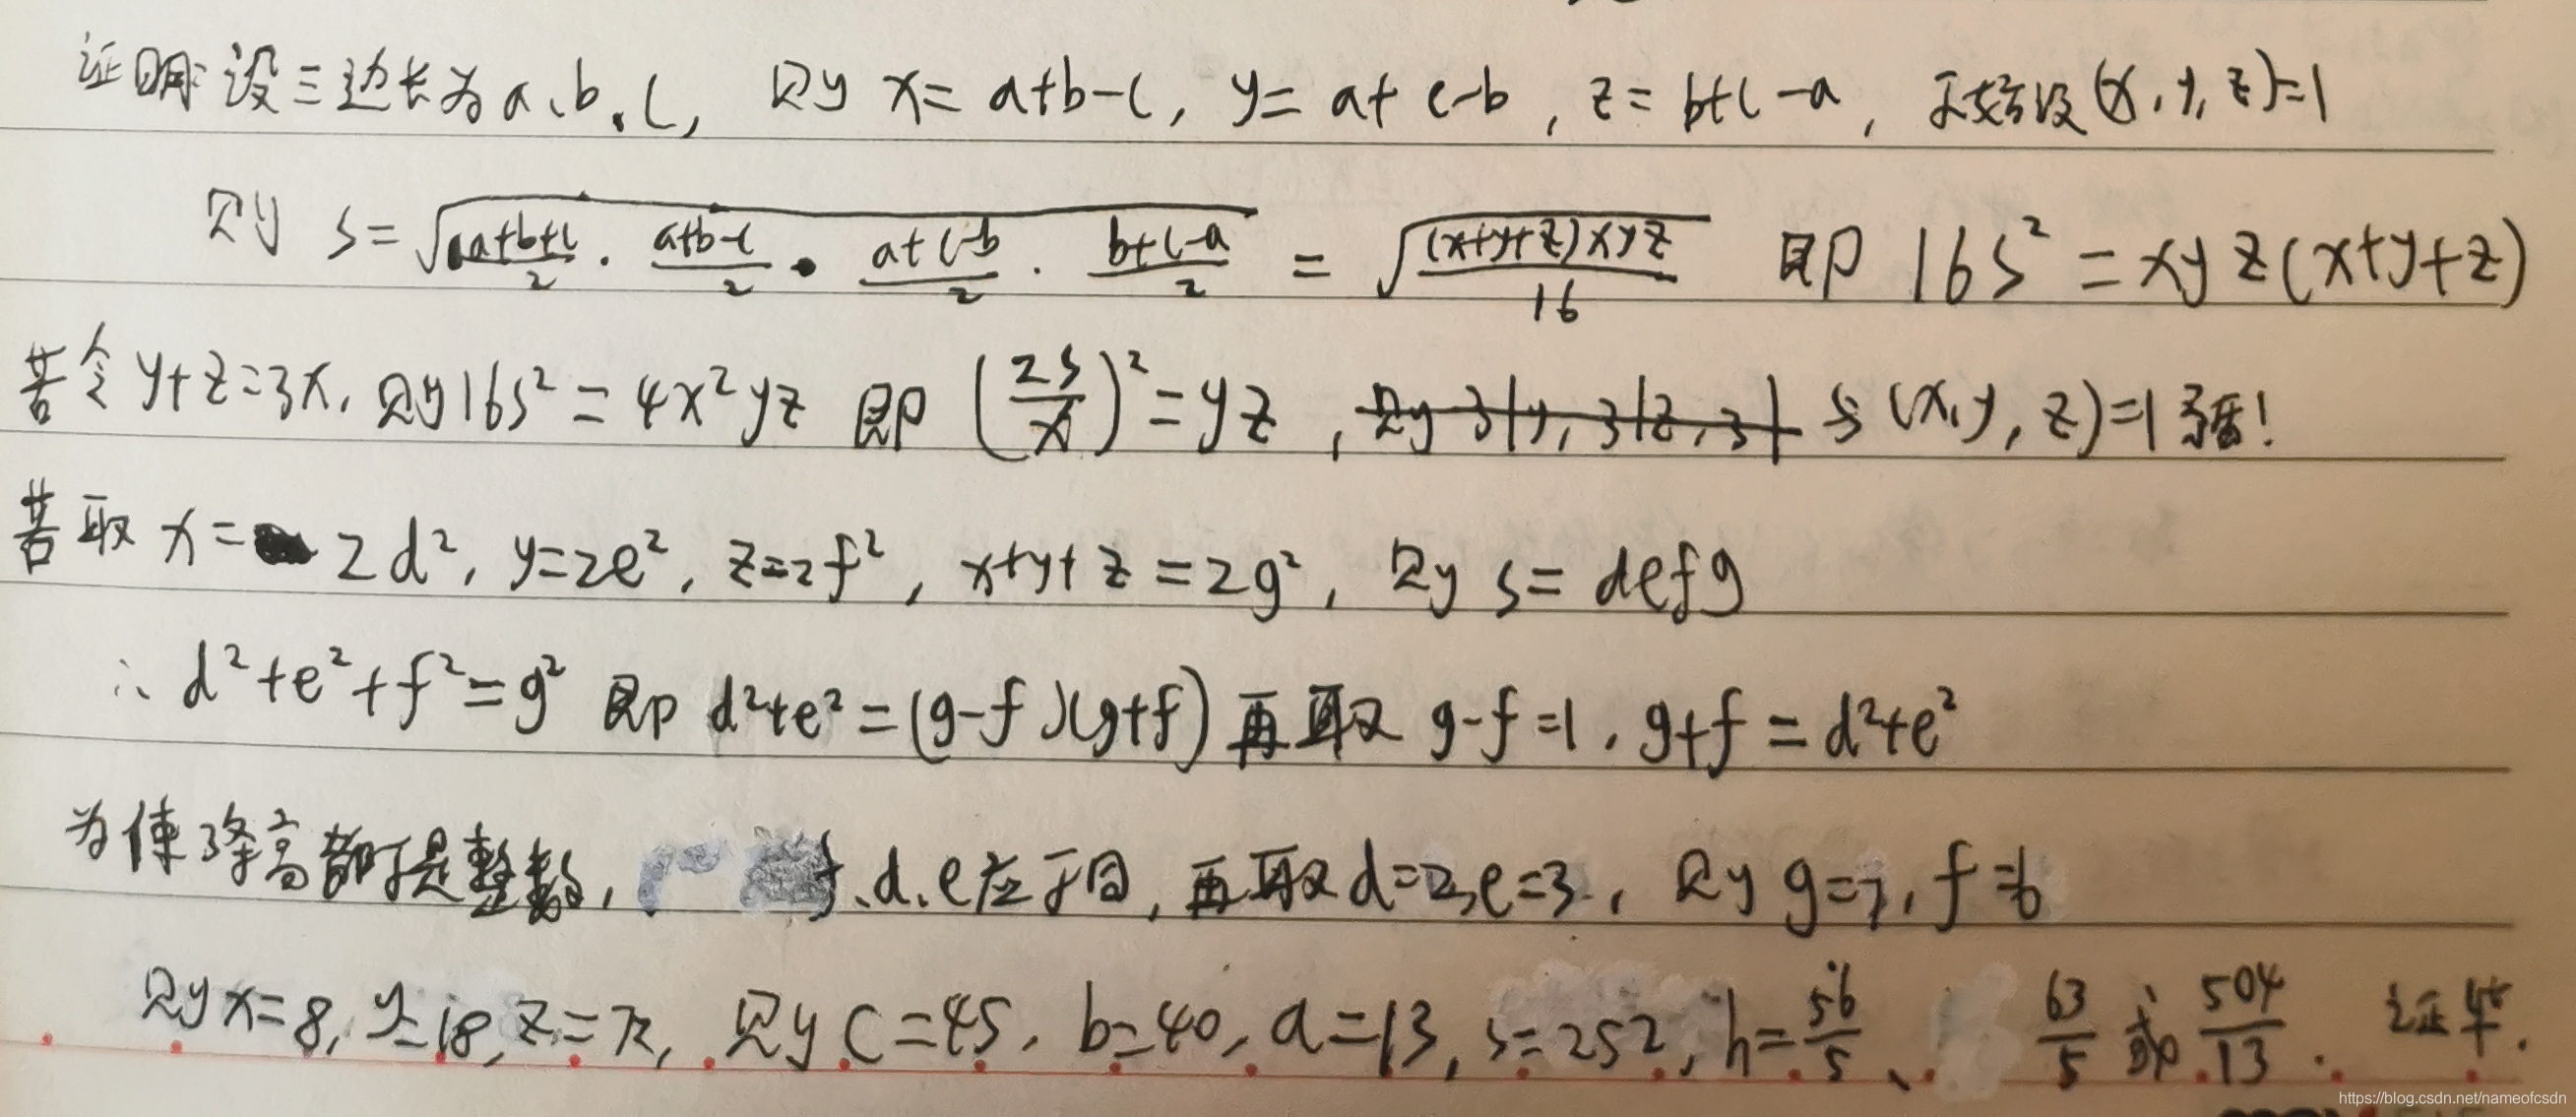 证明:设三边长为a、b、c,则 x=a+b-c, y=a+c-b, z=b+c-a, 不妨设(x,y,z)=1
则 s=√(a+b+c)/2·(a+b-c)/2·(a+c-b)/2·(b+c-a)/2 = √(x+y+z)xyz/16 即 16s²=xyz(x+y+z)
若令y+z=3x,则16s²=4x²yz 即 (2s/x)²=yz, 则3|y,3|z,3| 与(x,y,z)=1矛盾!
若取 x=2d², y=2e², z=2f², x+y+z=2g², 则 s=defg
∴ d²+e²+f²=g² 即 d²+e²=(g-f)(g+f) 再取 g-f=1, g+f=d²+e²
为使3条高都不是整数, f、d、e应不同, 再取d=2,e=3, 则g=7,f=6
则x=8, y=18, z=72, 则c=45, b=40, a=13, s=252, h=56/5、 63/5 或 504/13. 证毕.
https://blog.csdn.net/nameofcsdn